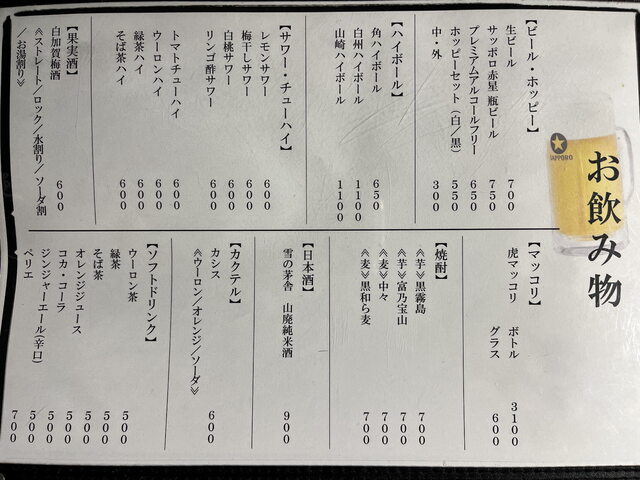 お飲み物
SAPPORO
【ビール・ホッピー】
生ビール 700
サッポロ赤星 瓶ビール 750
プレミアムアルコールフリー 650
ホッピーセット（白/黒） 550
中・外 300
【ハイボール】
角ハイボール 650
白州ハイボール 1100
山崎ハイボール 1100
【サワー・チューハイ】
レモンサワー 600
梅干しサワー 600
白桃サワー 600
リンゴ酢サワー 600
トマトチューハイ 600
ウーロンハイ 600
緑茶ハイ 600
そば茶ハイ 600
【果実酒】
白加賀梅酒 600
《ストレート/ロック/水割り/ソーダ割
/お湯割り》
【マッコリ】
虎マッコリ ボトル 3100
グラス 600
【焼酎】
《芋》黒霧島 700
《芋》富乃宝山 700
《麦》中々 700
《麦》黒和ら麦 700
【日本酒】
雪の茅舎 山廃純米酒 900
【カクテル】
カシス 600
《ウーロン/オレンジ/ソーダ》
【ソフトドリンク】
ウーロン茶 500
緑茶 500
そば茶 500
オレンジジュース 500
コカ・コーラ 500
ジンジャーエール(辛口) 500
ペリエ 700